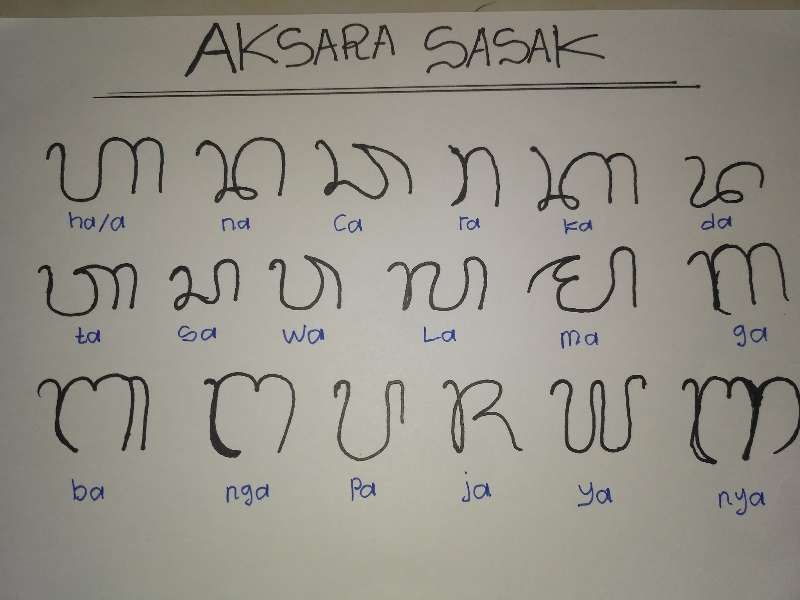 AKSARA SASAK
ᬳ ᬦ ᬘ ᬭ ᬓ ᬤ
ha/a na Ca ra ka da
ᬢ ᬲ ᬯ ᬮ ᬫ ᬕ
ta Sa Wa La ma ga
ᬩ ᬗ ᬧ ᬚ ᬬ ᬜ
ba nga Pa ja ya nya